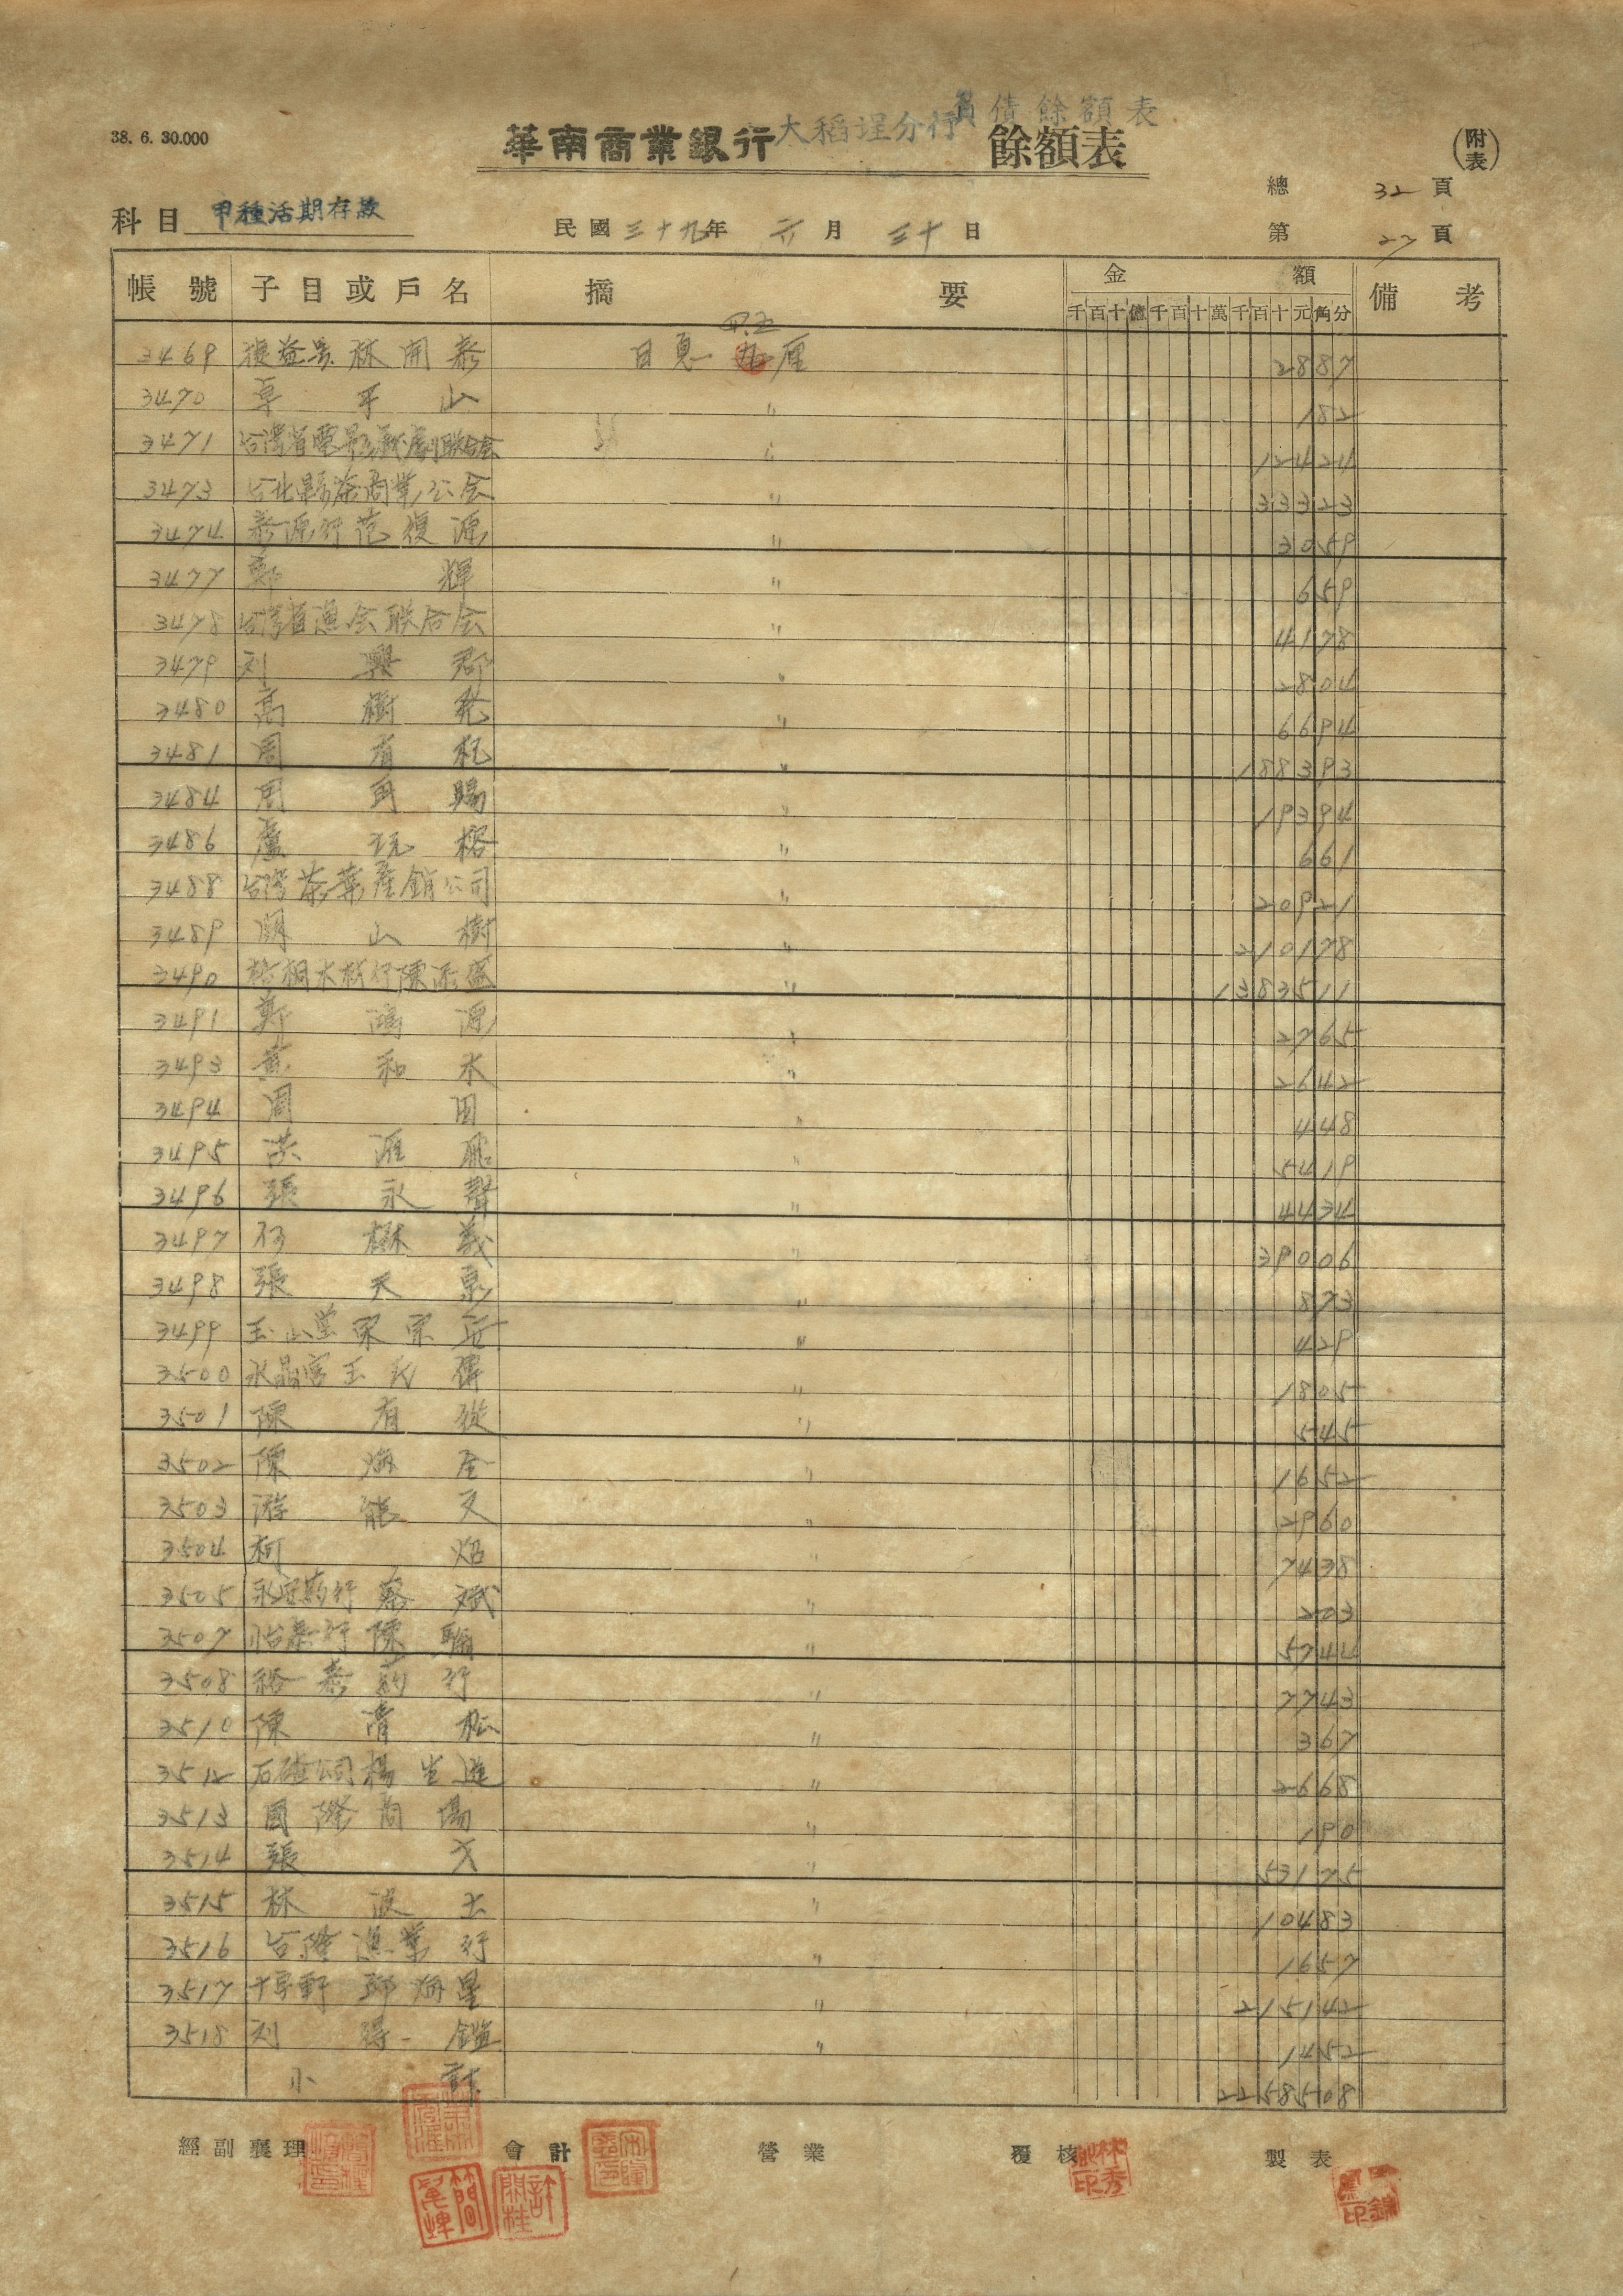 38. 6. 30.000
負債餘額表
華南商業銀行 大稻埕分行 餘額表 (附表)
總 32 頁
科目 甲種活期存款 民國三十九年 六月 三十日 第 27 頁
帳號 子目或戶名 摘要 金額 備考
千百十億千百十萬千百十元角分
四.五
3469 林開泰 日息 厘 2887
3470 山 〃 182
3471 台灣省電影戲劇联合会 〃 12424
3473 台北縣茶商業公会 〃 33323
3474 泰源行范復源 〃 3059
3477 鄭輝 〃 659
3478 台灣省漁会联合会 〃 4178
3479 刘興郡 〃 2804
3480 高樹発 〃 6694
3481 周有 〃 188393
3484 周再賜 〃 19394
3486 盧榕 〃 661
3488 台灣茶葉產銷公司 〃 20921
3489 山樹 〃 210178
3490 木材行陳添盛 〃 1383511
3491 鄭鴻源 〃 2765
3493 黃和木 〃 2642
3494 周田 〃 448
3495 洪雁 〃 5419
3496 張永聲 〃 4434
3497 何義 〃 39006
3498 張天泉 〃 873
3499 玉山堂 宗 〃 429
3500 水晶宮王 〃 1805
3501 陳有從 〃 545
3502 陳海全 〃 1652
3503 游龍文 〃 2960
3504 柯炤 〃 7438
3505 永 药行蔡斌 〃 203
3507 怡泰行陳 〃 5744
3508 裕泰药行 〃 7743
3510 陳清松 〃 367
3512 公司楊 進 〃 2668
3513 國際商場 〃 190
3514 張 〃 53175
3515 林波土 〃 10483
3516 台隆漁業行 〃 1657
3517 軒 鄭海星 〃 215142
3518 刘得鎰 〃 1452
小計 2258508
經副襄理 會計 營業 覆核 製表